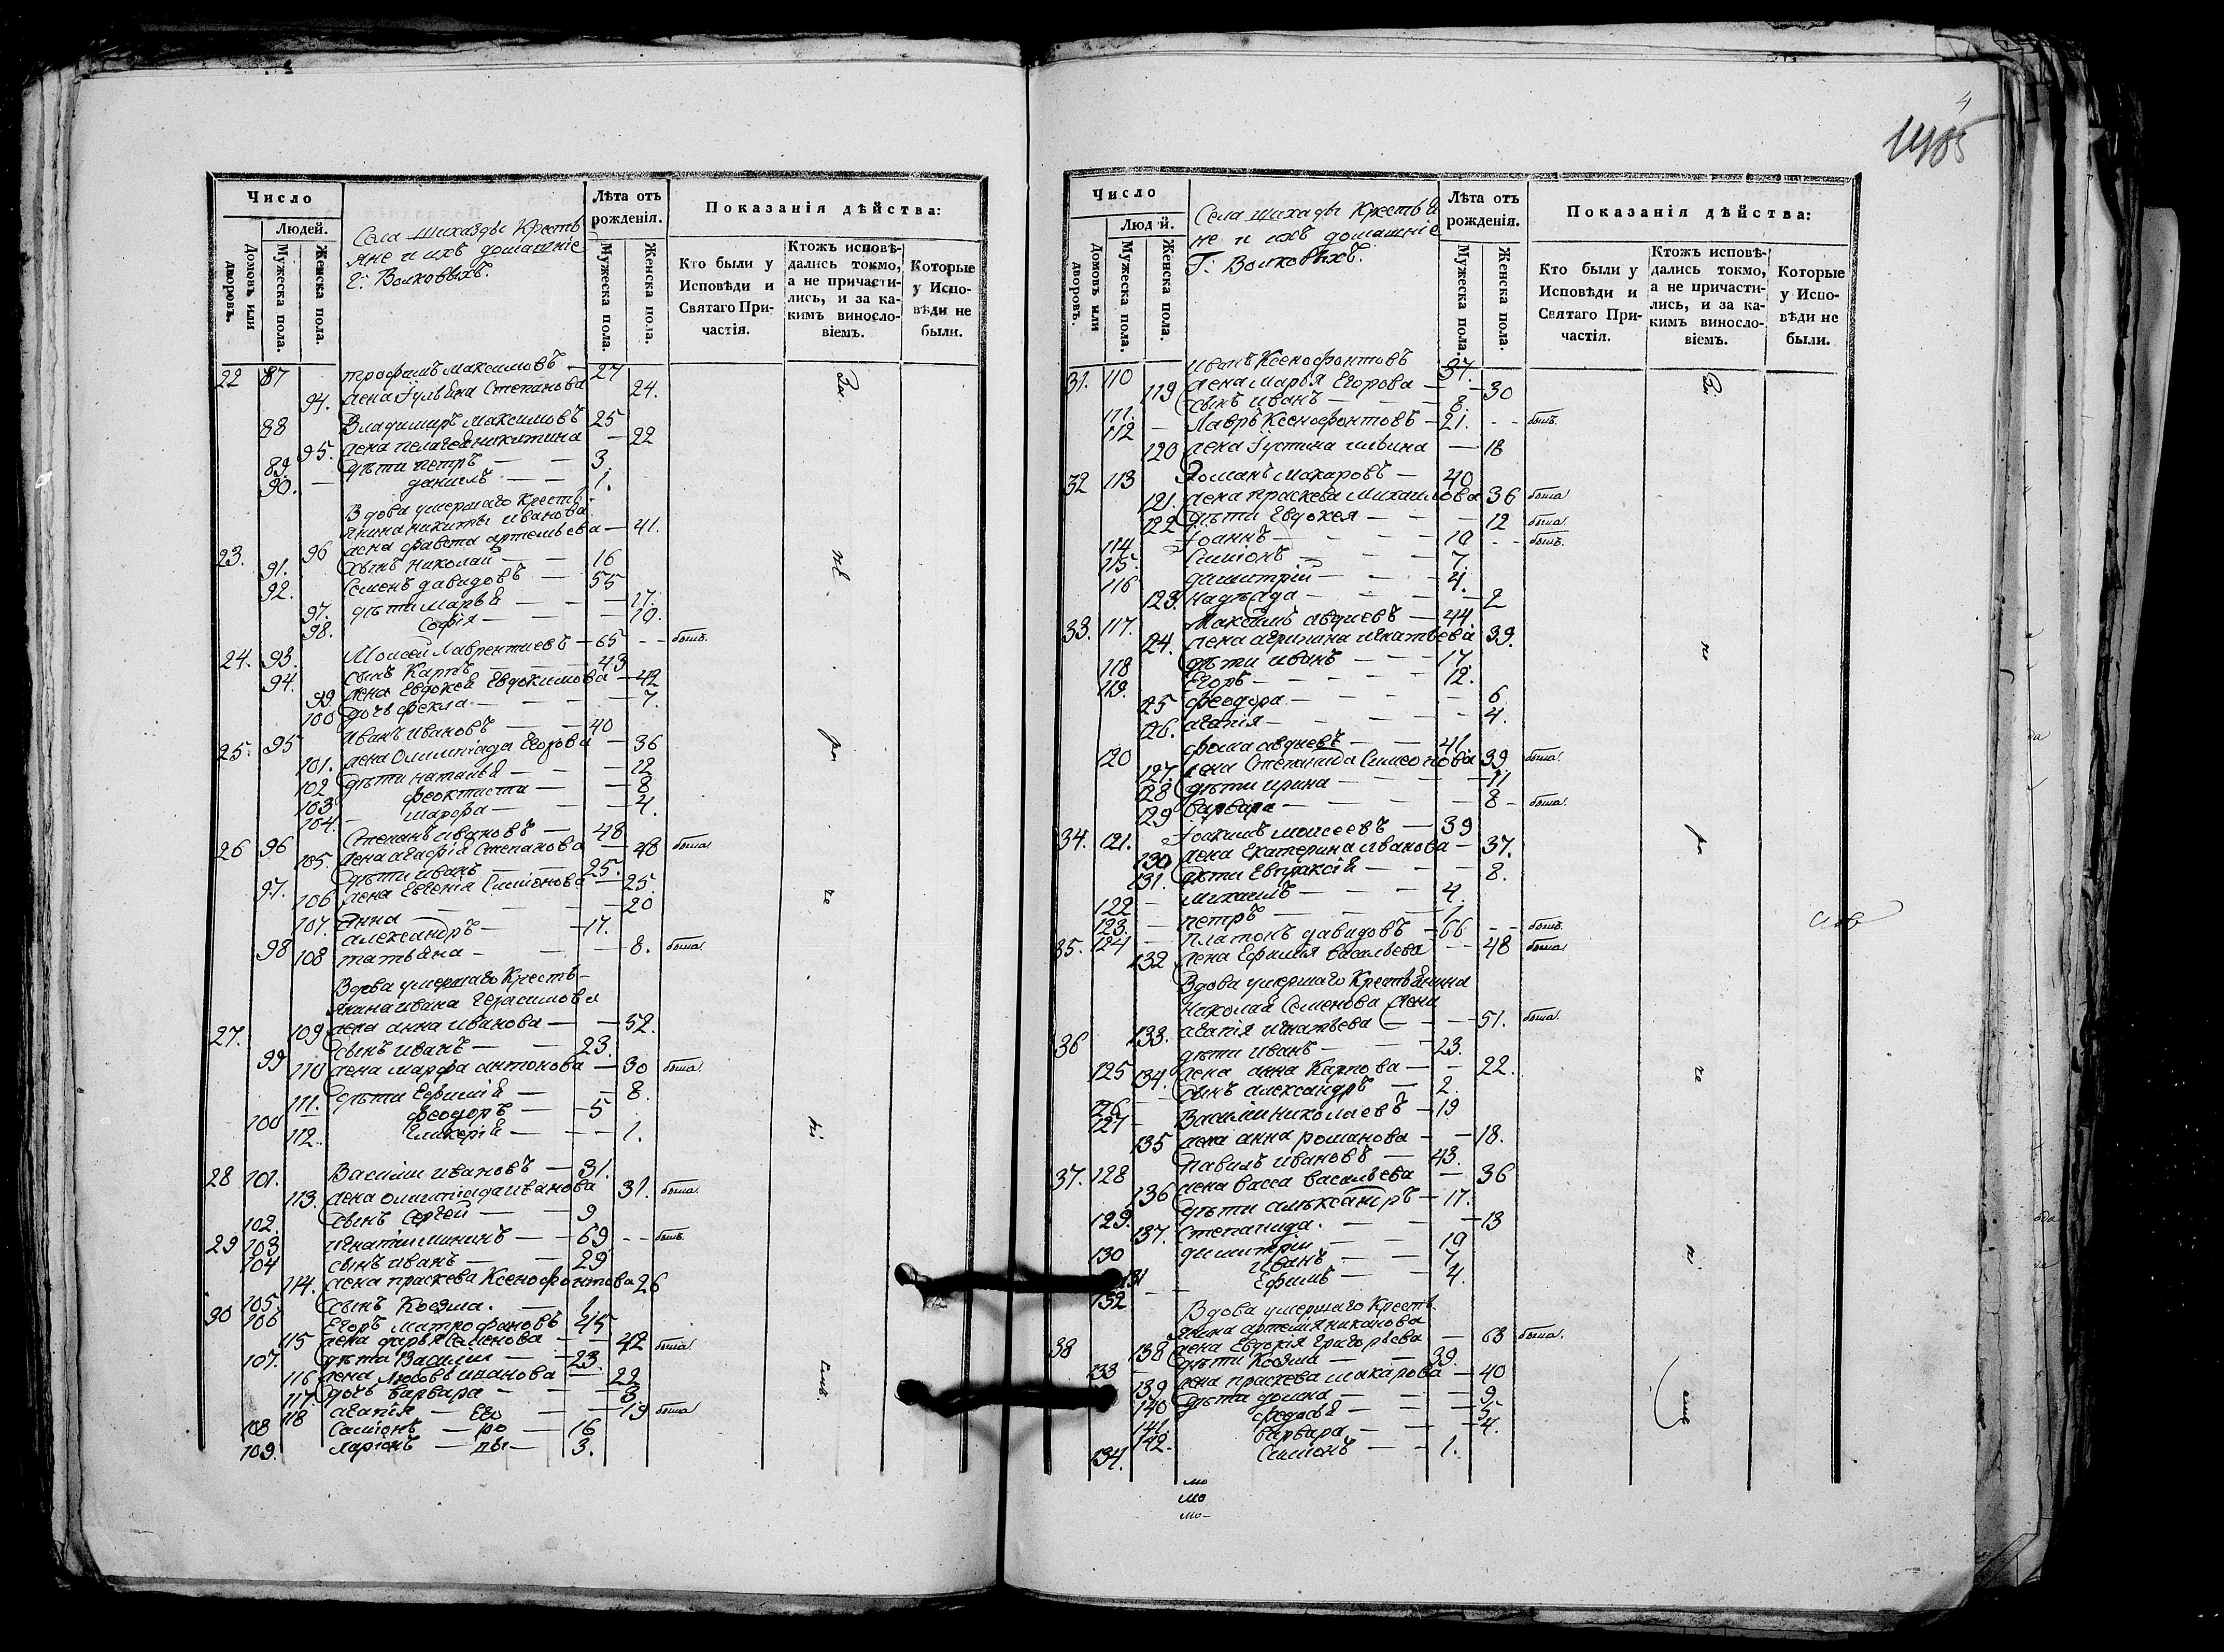 Число
Людей.
Домовъ или дворовъ.
Мужеска пола.
Женска пола.
Села Шихазды Кресть
яне и ихъ домашніе
Г: Волковыхъ.
Лѣта отъ рожденія.
Мужеска пола.
Женска пола.
Показанія дѣйства:
Кто были у Исповѣди и Святаго Причастія.
Ктожъ исповѣдались токмо, а не причастились, и за какимъ винословіемъ.
Которые у Исповѣди не были.
22 87 трофимъ Максимовъ — 27
94. жена Гулѣяна Степанова 24.
88 Владимиръ Максимовъ 25
95. жена пелагея никитина — 22
89. дѣти петръ — — 3
90. — данилъ — — 1.
Вдова умершаго Кресть-
янина никиты иванова
23. 96 жена фавста артемьева — 41.
91. сынъ николай — — 16
92. Семенъ давидовъ — 55
97. дѣти марья — — — 17.
98. Софія — — — 10.
24. 93. Моисей Лаврентиевъ — 65 - - былъ.
94. сынъ Карпъ — — — 43
99. жена Евдокея Евдокимова — 42
100 дочь фекла — — — 7.
25. 95 иванъ ивановъ — — 40
101. жена Олимпіада Егорова — 36
102 дѣти наталья — — — 12
103 феоктиста — — — 8
104. — марфа — — — 4.
26 96 Степанъ ивановъ — 48
105. жена агафія Степанова — 48 была
97. дѣти иванъ — — 25.
106 жена Евгенія Симіонова — 25.
107. анна — — — — 20
98 александръ — — 17.
108 татьяна — — — 8. была.
Вдова умершаго Кресть-
янина ивана Герасимова
27. 109 жена анна иванова — — 52.
99 сынъ иванъ — — 23.
110 жена марфа антонова — 30 была.
111. дѣти Ефимія — — 8.
100 — феодоръ — — 5
112. Гликерія — — — 1.
28 101. Василій ивановъ — 31.
113. жена олимпіада иванова 31. была.
102. сынъ Сергей — — 9
29 103 игнатій мининъ — — 69 - - былъ.
104 сынъ иванъ — — 29
114. жена праскева Ксенофонтова 26
105. сынъ Козма. — — 1
30 106 Егоръ митрофановъ 45
115 жена дарья Семенова — — 42 была
107. дѣти Василій — — 23.
116 жена Любовь иванова — 22
117 дочь варвара — — — 3
118 агапія — Его — — 19 была
108 Симіонъ — ро — 16
109. ларіонъ — вы — 3.
За
не
.
ра
че
.
ні
емъ.
4
1405
Число
Людей.
Домовъ или дворовъ.
Мужеска пола.
Женска пола.
Села шихазды Крестья
не и ихъ домашніе
Г: Волковыхъ.
Лѣта отъ рожденія.
Мужеска пола.
Женска пола.
Показанія дѣйства:
Кто были у Исповѣди и Святаго Причастія.
Ктожъ исповѣдались токмо, а не причастились, и за какимъ винословіемъ.
Которые у Исповѣди не были.
31. 110 иванъ Ксенофонтовъ 37.
119 жена Марья Егорова — — 30
111. сынъ иванъ — — — 8.
112 — Лавръ Ксенофонтовъ — 21. - - былъ.
120 жена Густина ильина — 18
32 113 Романъ макаровъ — 40
121. жена праскева Михаилова 36 была
122 дѣти Евдокея — — — 12 была
114. Іоаннъ — — — 10 - - былъ.
115. Симіонъ — — — 7.
116 димитрій — — — 4.
123. надежда — — — — 2
33. 117. Максимъ авдиевъ — 44.
124. жена агрипина игнатьева 39.
118 дѣти иванъ — — — 17.
119. Егоръ — — — — 12.
125 феодора — — — — 6
126. агапія — — — — 4.
120 фома авдиевъ — — 41.
127. жена Степанида Симеонова 39. была.
128 дѣти ирина — — — 11
129 варвара — — — — 8 - была.
34. 121. Іоакимъ моисеевъ — 39
130 жена Екатерина иванова — 37.
131. дѣти Евпраксія — — — 8.
122 — михаилъ — — — 4
123. — петръ — — — 1.
35. 124 — платонъ давидовъ — 66 - - былъ.
132 жена Ефимія васильева — 48 была
Вдова умершаго Крестьянина
Николая Семенова жена
36 133. агапія игнатьева — — 51. была.
125 дѣти иванъ — — — 23.
134. жена анна Карпова — — 22.
126 — сынъ александръ — 2.
127 — Василій николаевъ — 19
135 жена анна романова — — 18.
37. 128 павилъ ивановъ — 43.
136 жена васса васильева — 36
129. дѣти алѣксандръ — 17.
137. Степанида. — — — 13
130 димитрій — — 10
131 иванъ — — 7
132 — Ефимъ — — 4.
Вдова умершаго Кресть
янина артемія никонова
38 138 жена Евдокія Григорьева — 63 была.
133 — дѣти Козма — — 39.
139 жена праскева макарова — 40
140 дѣти домна — — — 9
141. федосья — — — 5
142. варвара — — — 4.
134. Симіонъ — — 1.
За
не
ра
че
ні
емъ
мо
мо
мо-